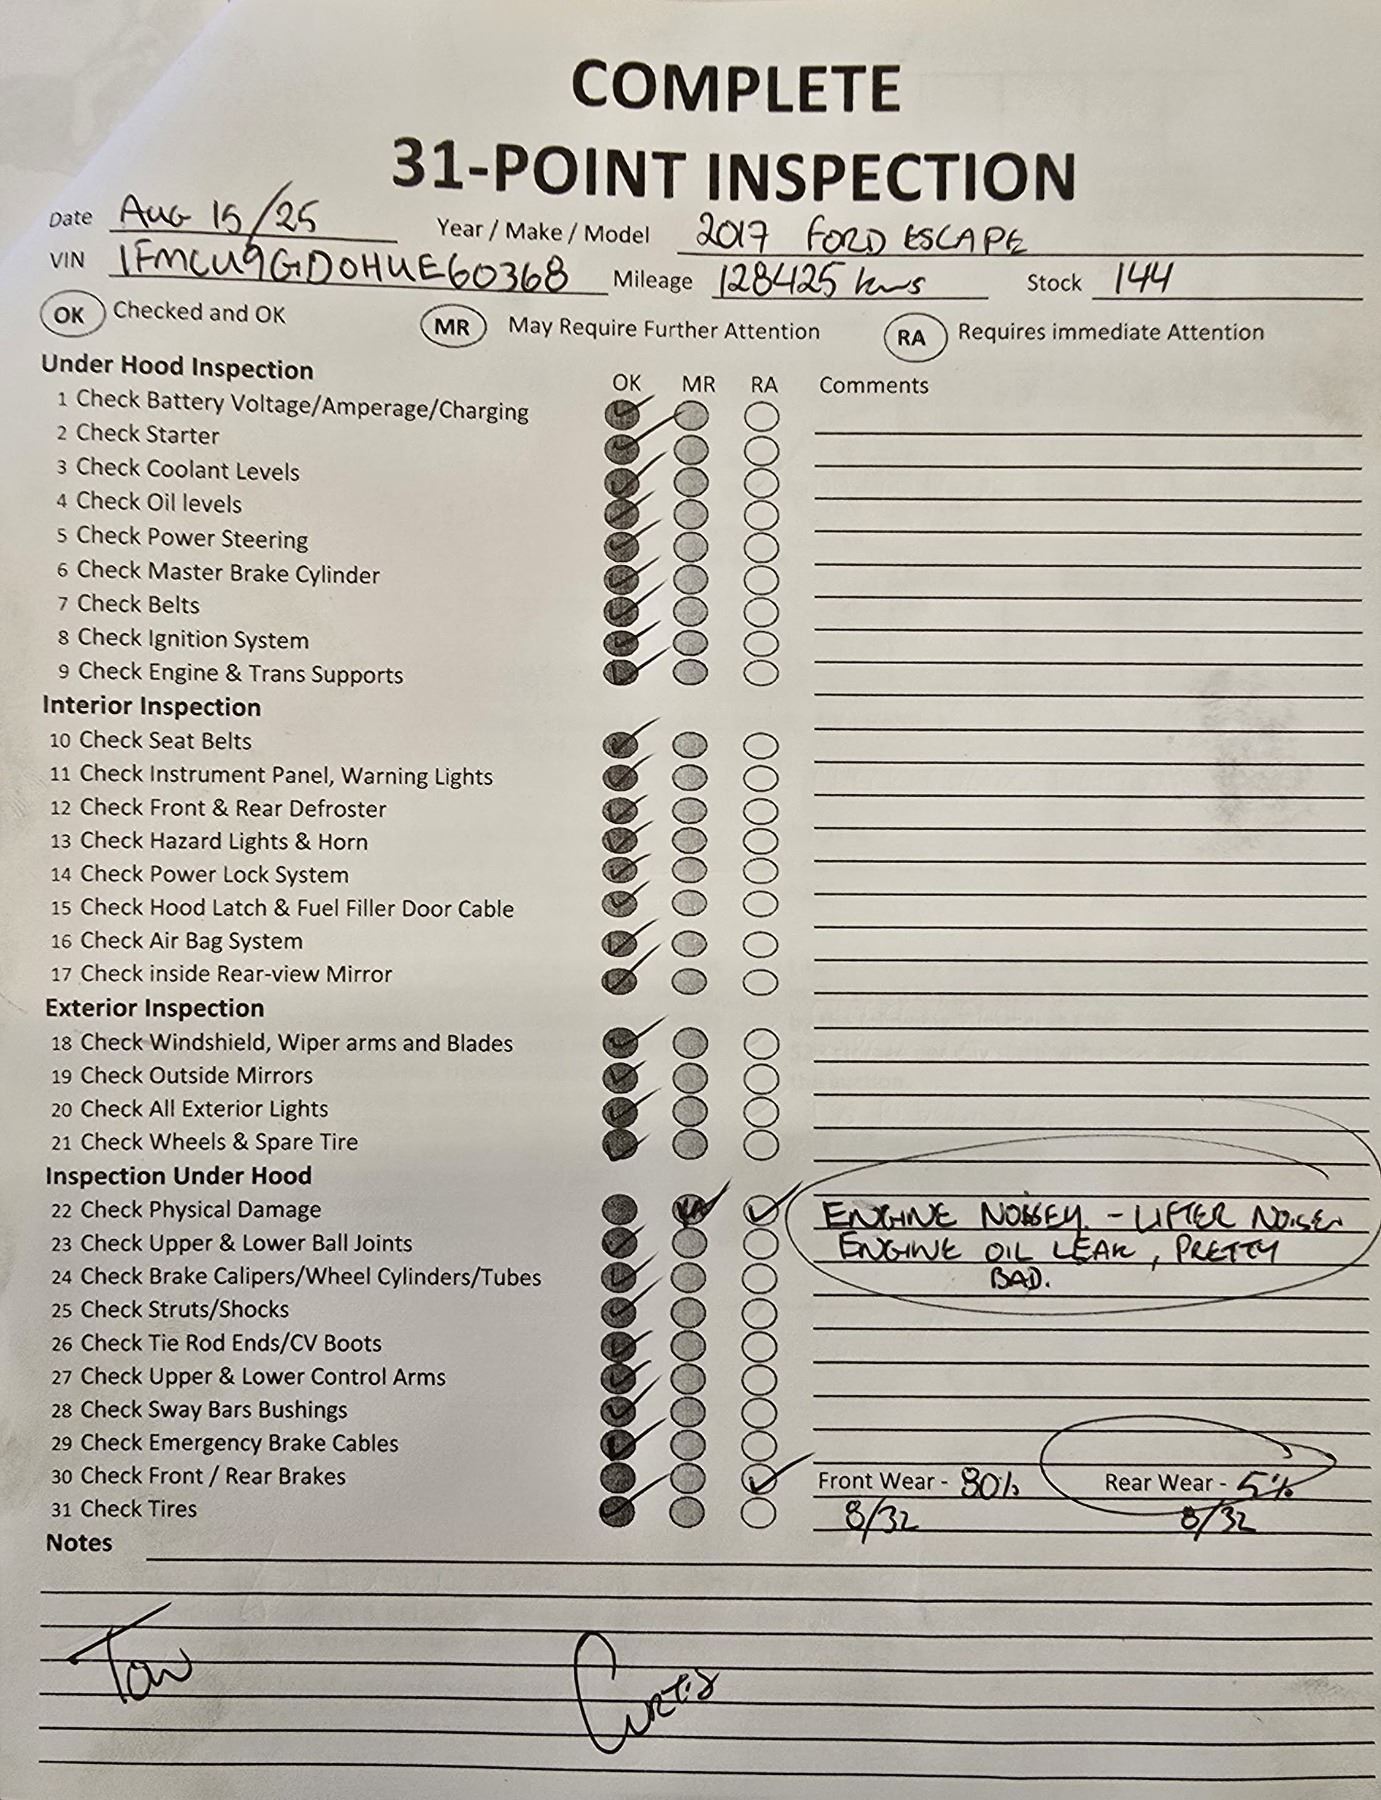 COMPLETE
31-POINT INSPECTION
Date AUG 15/25 Year / Make / Model 2017 FORD ESCAPE
VIN 1FMCU9GD0HUE60368 Mileage 128425 kms Stock 144
OK Checked and OK MR May Require Further Attention RA Requires immediate Attention
Under Hood Inspection OK MR RA Comments
1 Check Battery Voltage/Amperage/Charging
2 Check Starter
3 Check Coolant Levels
4 Check Oil levels
5 Check Power Steering
6 Check Master Brake Cylinder
7 Check Belts
8 Check Ignition System
9 Check Engine & Trans Supports
Interior Inspection
10 Check Seat Belts
11 Check Instrument Panel, Warning Lights
12 Check Front & Rear Defroster
13 Check Hazard Lights & Horn
14 Check Power Lock System
15 Check Hood Latch & Fuel Filler Door Cable
16 Check Air Bag System
17 Check inside Rear-view Mirror
Exterior Inspection
18 Check Windshield, Wiper arms and Blades
19 Check Outside Mirrors
20 Check All Exterior Lights
21 Check Wheels & Spare Tire
Inspection Under Hood
22 Check Physical Damage ENGINE NOISEY - LIFTER NOISE
23 Check Upper & Lower Ball Joints ENGINE OIL LEAK, PRETTY
BAD.
24 Check Brake Calipers/Wheel Cylinders/Tubes
25 Check Struts/Shocks
26 Check Tie Rod Ends/CV Boots
27 Check Upper & Lower Control Arms
28 Check Sway Bars Bushings
29 Check Emergency Brake Cables
30 Check Front / Rear Brakes Front Wear - 80% Rear Wear - 5%
31 Check Tires 8/32 8/32
Notes
Curtis